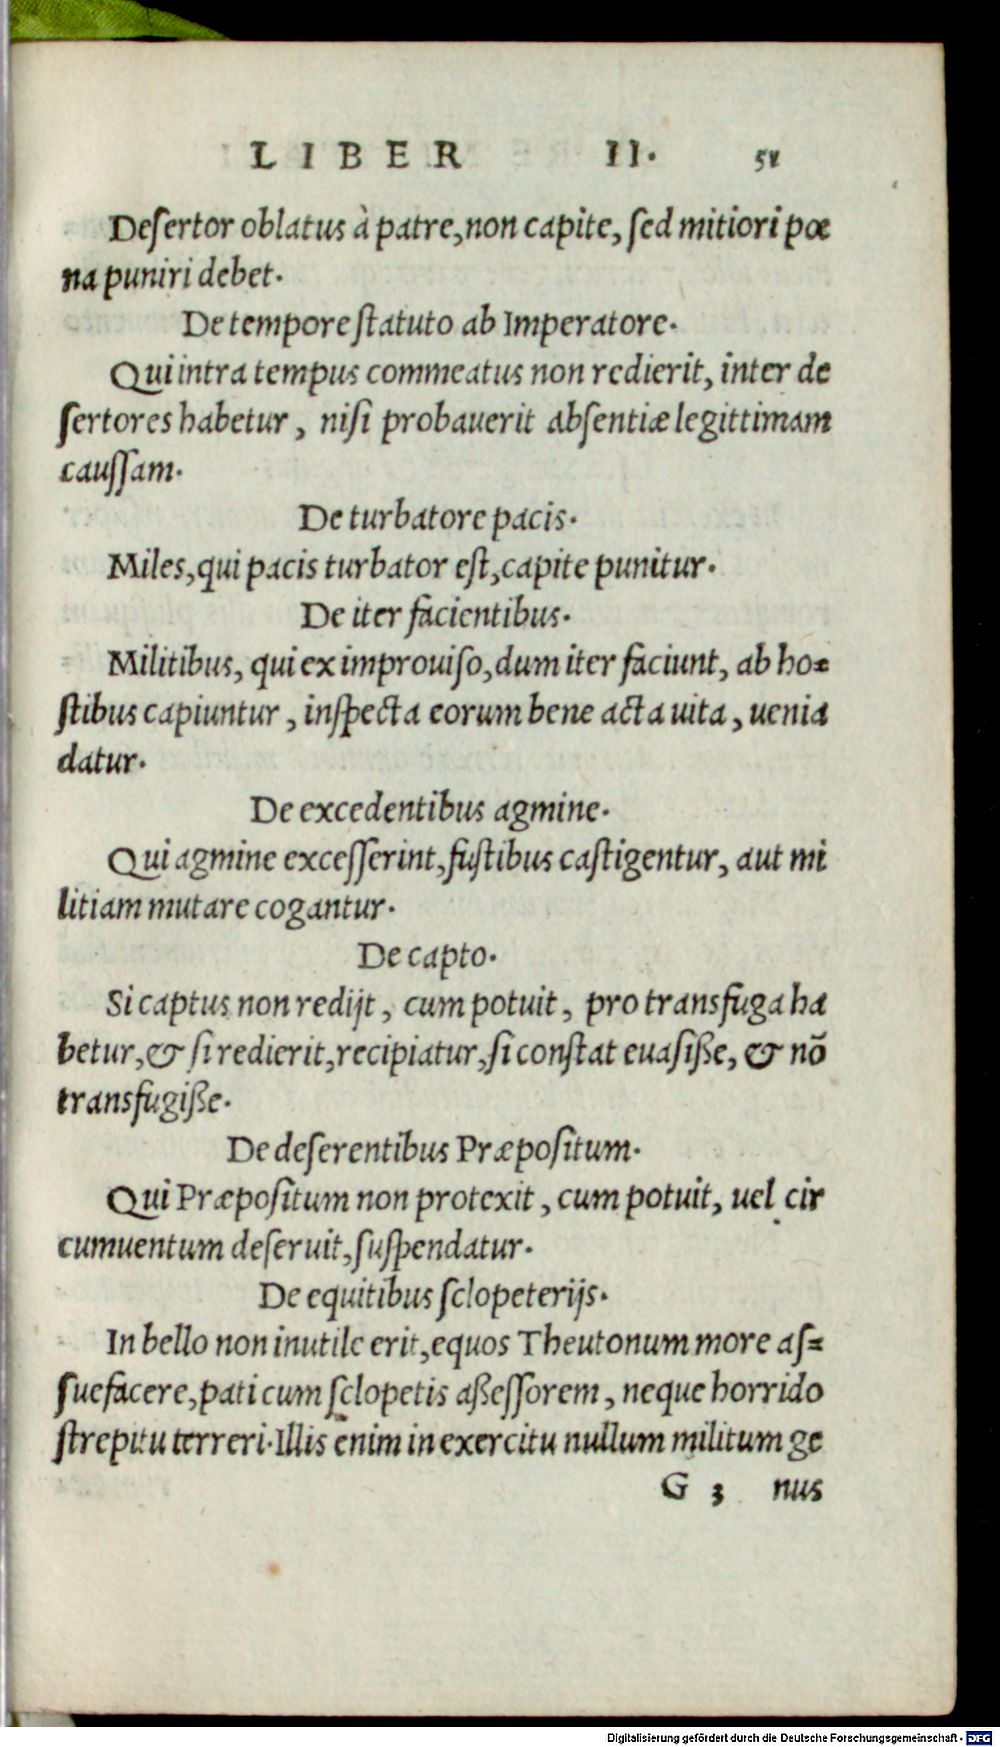 LIBER II. 51
Deſertor oblatus à patre, non capite, ſed mitiori pœ
na puniri debet.
De tempore ſtatuto ab Imperatore.
Qui intra tempus commeatus non redierit, inter de
ſertores habetur, niſi probauerit abſentiæ legittimam
cauſſam.
De turbatore pacis.
Miles, qui pacis turbator eſt, capite punitur.
De iter facientibus.
Militibus, qui ex improuiſo, dum iter faciunt, ab ho=
ſtibus capiuntur, inſpecta eorum bene acta uita, uenia
datur.
De excedentibus agmine.
Qui agmine exceſſerint, fuſtibus caſtigentur, aut mi
litiam mutare cogantur.
De capto.
Si captus non redijt, cum potuit, pro transfuga ha
betur, & ſi redierit, recipiatur, ſi conſtat euaſiße, & nō
transfugiße.
De deſerentibus Præpoſitum.
Qui Præpoſitum non protexit, cum potuit, uel cir
cumuentum deſeruit, ſuſpendatur.
De equitibus ſclopeterijs.
In bello non inutile erit, equos Theutonum more aſ=
ſuefacere, pati cum ſclopetis aßeſſorem, neque horrido
ſtrepitu terreri. Illis enim in exercitu nullum militum ge
G 3 nus
Digitalisierung gefördert durch die Deutsche Forschungsgemeinschaft - DFG